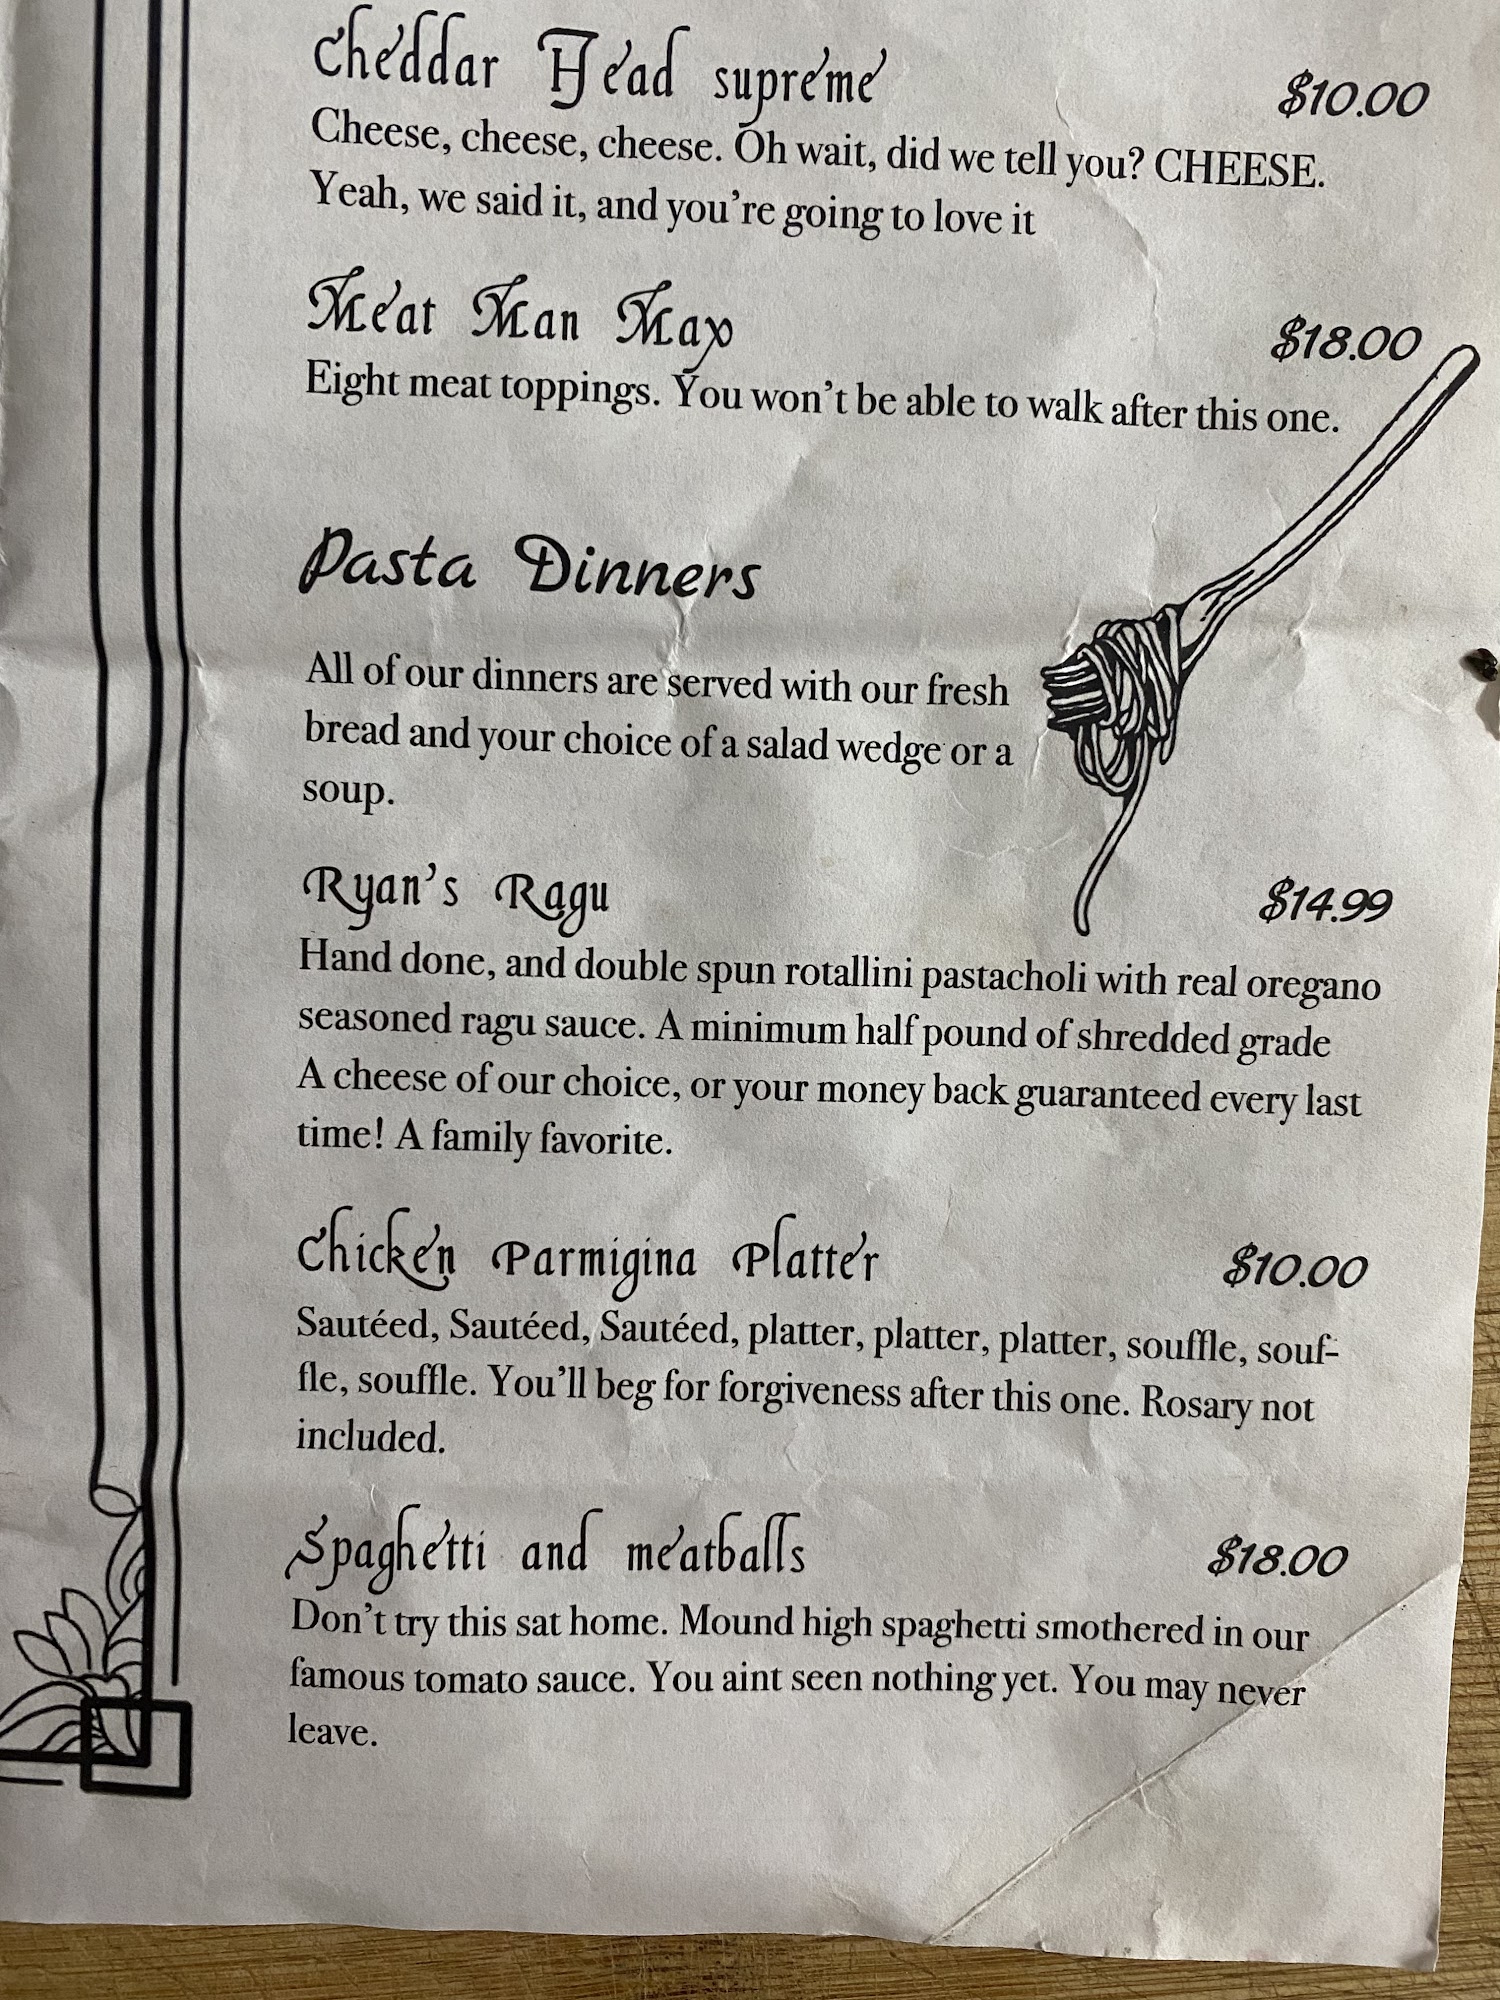 Cheddar Head supreme $10.00
Cheese, cheese, cheese. Oh wait, did we tell you? CHEESE.
Yeah, we said it, and you're going to love it
Meat Man Max $18.00
Eight meat toppings. You won't be able to walk after this one.
Pasta Dinners
All of our dinners are served with our fresh
bread and your choice of a salad wedge or a
soup.
Ryan's Ragu $14.99
Hand done, and double spun rotallini pastacholi with real oregano
seasoned ragu sauce. A minimum half pound of shredded grade
A cheese of our choice, or your money back guaranteed every last
time! A family favorite.
Chicken Parmigina Platter $10.00
Sautéed, Sautéed, Sautéed, platter, platter, platter, souffle, souf-
fle, souffle. You'll beg for forgiveness after this one. Rosary not
included.
Spaghetti and meatballs $18.00
Don't try this sat home. Mound high spaghetti smothered in our
famous tomato sauce. You aint seen nothing yet. You may never
leave.